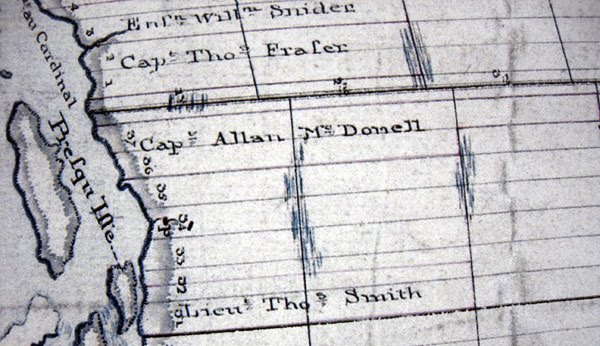 Ensn Willm Snider
Capt Thos Fraser
2
1
Cardinal
Presqu Isle
37
Capt Allan Mc Donell
36
35
34
33
32
Lieut Thos Smith